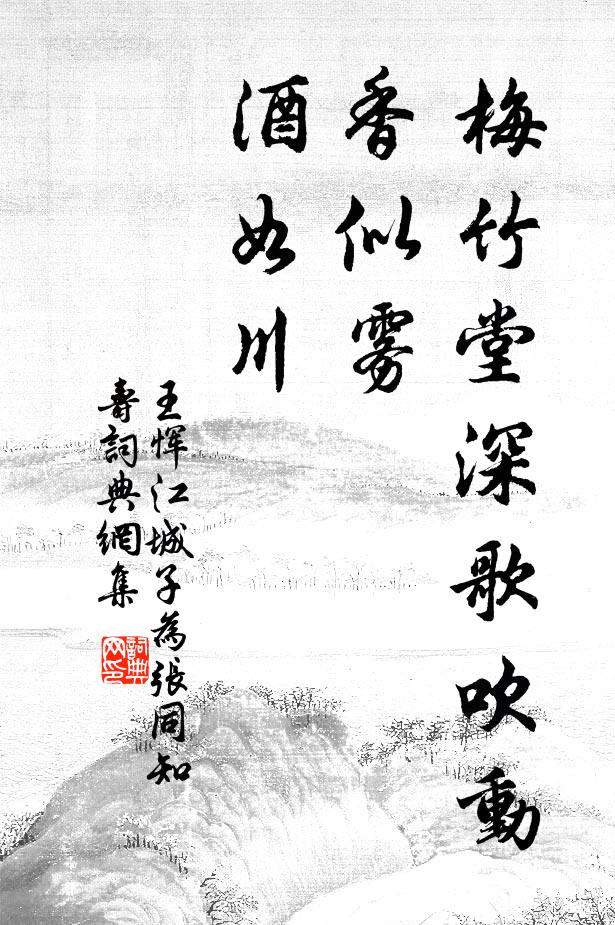 梅竹堂深歌吹動
香似雾
酒如川
王恽江城子為張同知
壽詞典網集
詞典
网印